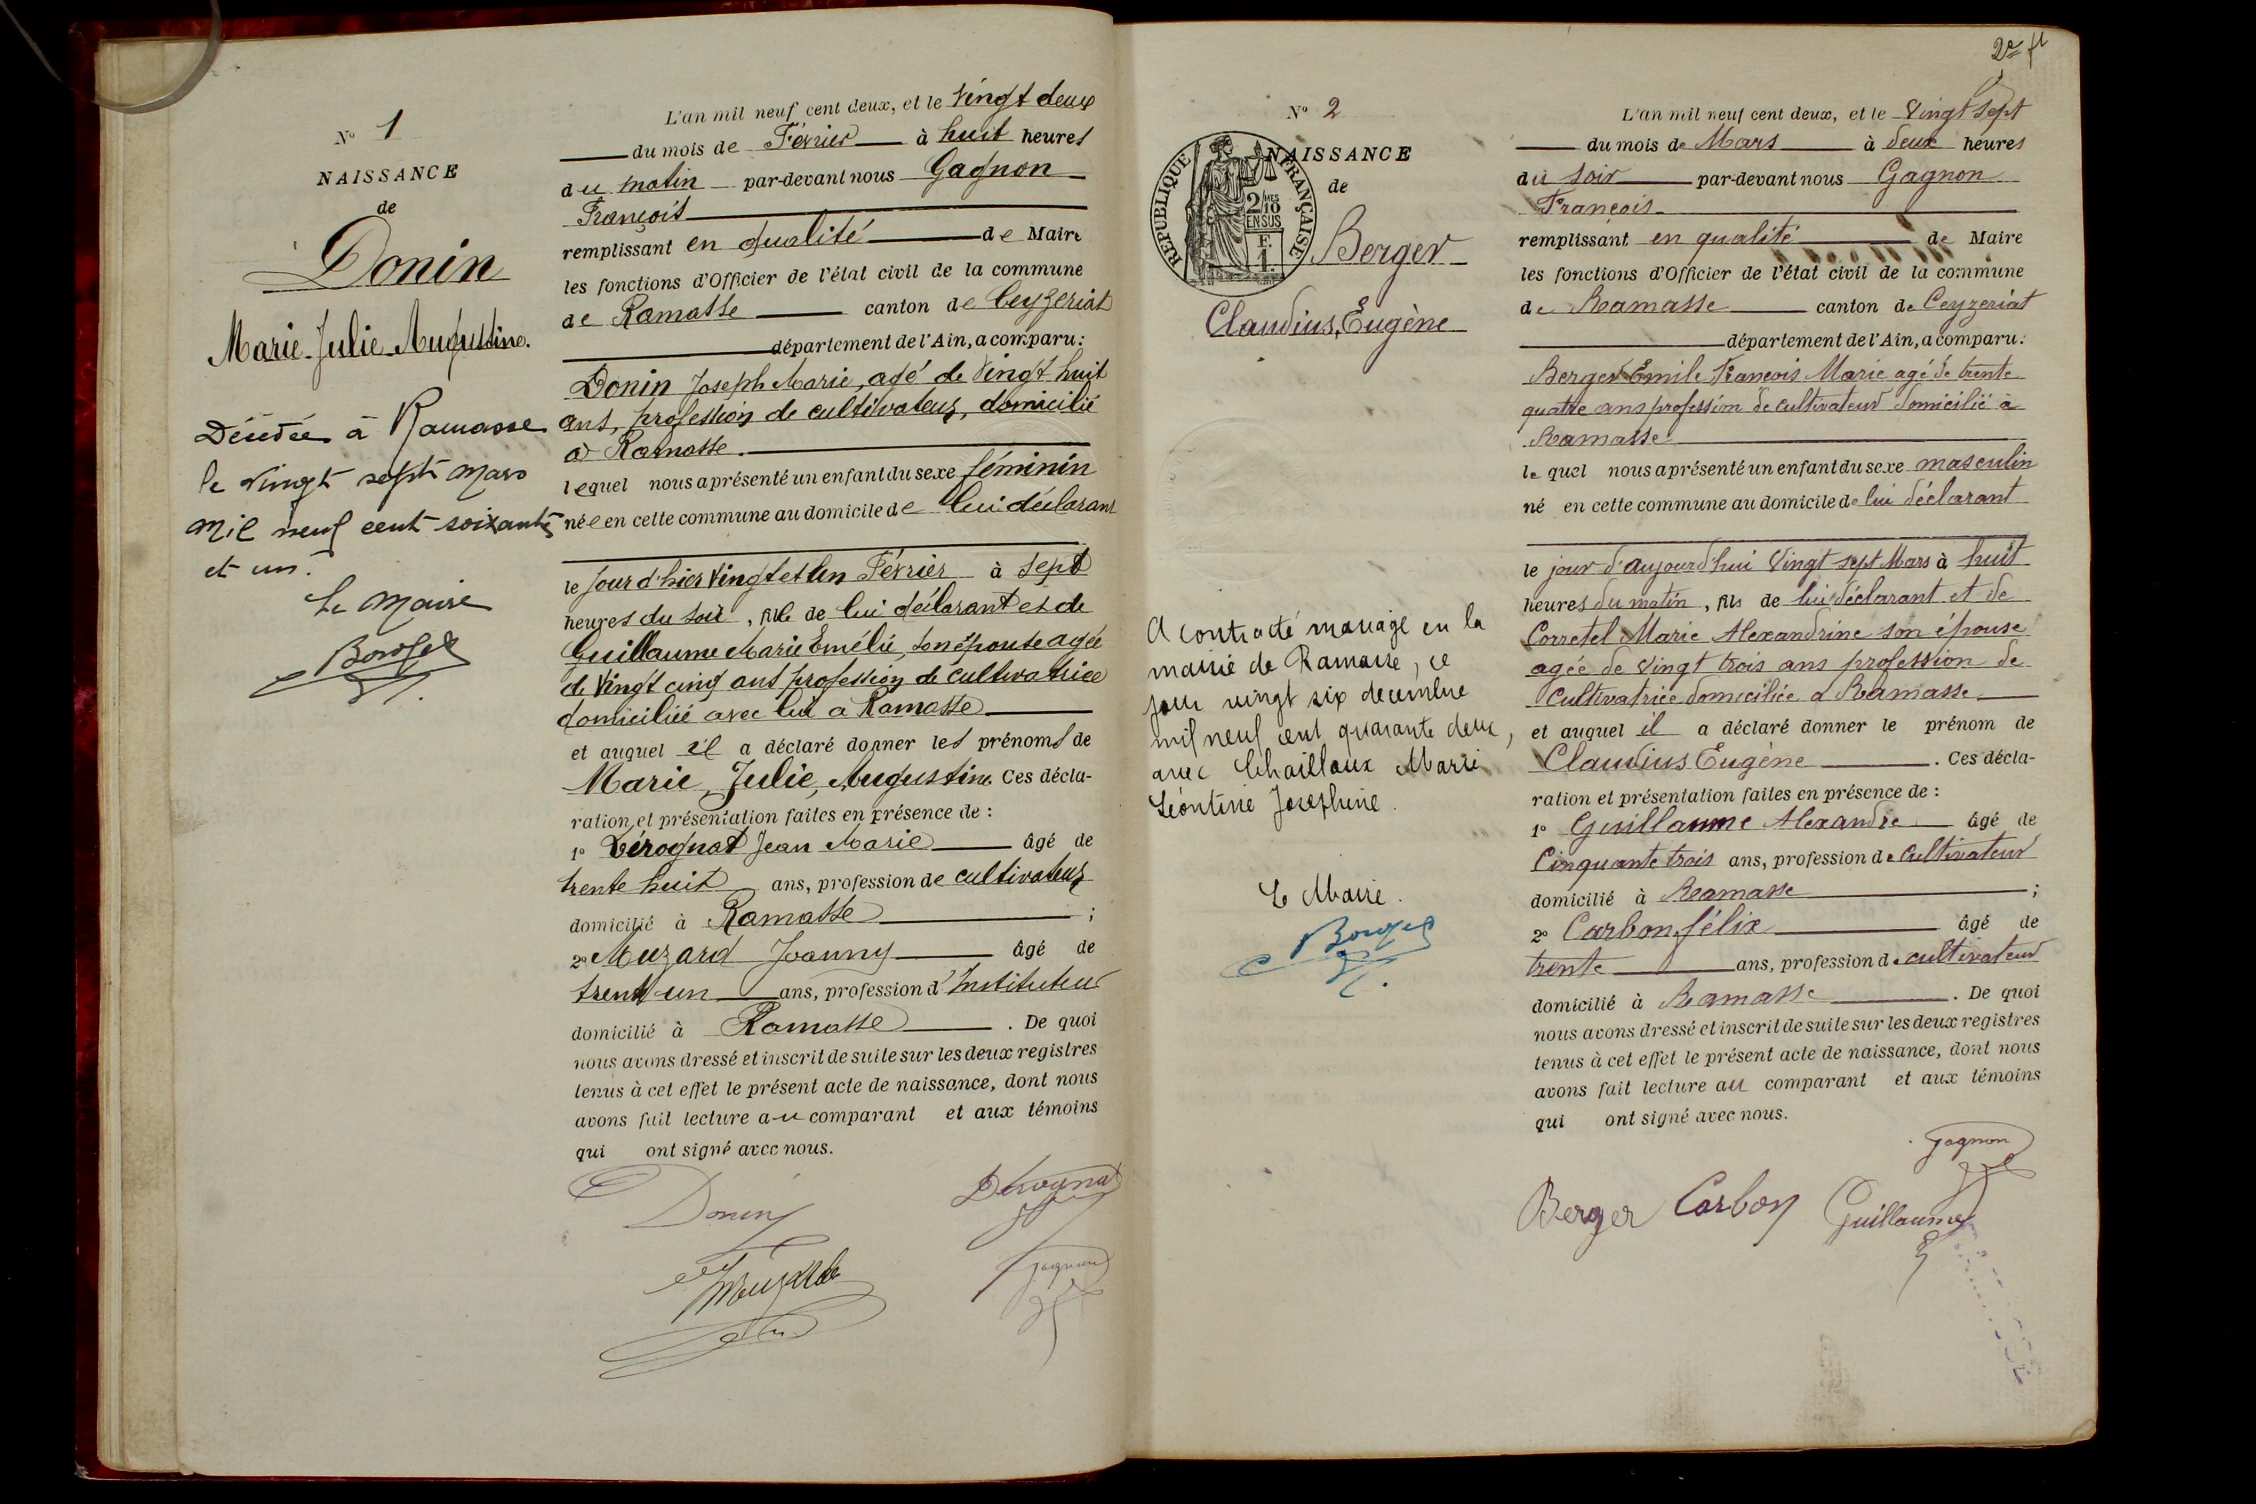 N° 1
NAISSANCE
de
Donin
Marie Julie Augustine.
Décédée à Ramasse
le vingt sept mars
mil neuf cent soixante
et un.
Le Maire
L'an mil neuf cent deux, et le Vingt deux
du mois de Février à huit heures
du matin par-devant nous Gagnon
François
remplissant en qualité de Maire
les fonctions d'Officier de l'état civil de la commune
de Ramasse canton de Ceyzeriat
département de l'Ain, a comparu:
Donin Joseph Marie, agé de Vingt huit
ans, profession de cultivateur, domicilié
à Ramasse.
lequel nous a présenté un enfant du sexe féminin
née en cette commune au domicile de lui déclarant
le jour d'hier Vingt et Un Février à sept
heures du soir, fille de lui déclarant et de
Guillaume Marie Emélie, son épouse agée
de Vingt cinq ans profession de cultivatrice
domiciliée avec lui a Ramasse
et auquel il a déclaré donner les prénoms de
Marie, Julie, Augustine Ces décla-
ration et présentation faites en présence de :
1° Dérognat Jean Marie âgé de
trente huit ans, profession de cultivateur
domicilié à Ramasse ;
2° Muzard Joanny âgé de
trente un ans, profession d'Instituteur
domicilié à Ramasse . De quoi
nous avons dressé et inscrit de suite sur les deux registres
tenus à cet effet le présent acte de naissance, dont nous
avons fait lecture au comparant et aux témoins
qui ont signé avec nous.
Donin Dérognat
Muzard Gagnon
2e ft
N° 2
NAISSANCE
de
REPUBLIQUE FRANÇAISE
2/10 MES
EN SUS
F.
1.
Berger
Claudius, Eugène
A contracté mariage en la
mairie de Ramasse, ce
jour vingt six decembre
mil neuf cent quarante deux,
avec Chailloux Marie
Léontine Josephine.
Le Maire.
L'an mil neuf cent deux, et le Vingt sept
du mois de Mars à deux heures
du soir par-devant nous Gagnon
François
remplissant en qualité de Maire
les fonctions d'Officier de l'état civil de la commune
de Ramasse canton de Ceyzeriat
département de l'Ain, a comparu:
Berger Emile François Marie agé de trente
quatre ans profession de cultivateur domicilié à
Ramasse
le quel nous a présenté un enfant du sexe masculin
né en cette commune au domicile de lui déclarant
le jour d'aujourd'hui Vingt sept Mars à huit
heures du matin, fils de lui déclarant et de
Corretel Marie Alexandrine son épouse
agée de vingt trois ans profession de
Cultivatrice domiciliée a Ramasse
et auquel il a déclaré donner le prénom de
Claudius Eugène . Ces décla-
ration et présentation faites en présence de :
1° Guillaume Alexandre âgé de
Cinquante trois ans, profession de Cultivateur
domicilié à Ramasse ;
2° Carbon félix âgé de
trente ans, profession de cultivateur
domicilié à Ramasse . De quoi
nous avons dressé et inscrit de suite sur les deux registres
tenus à cet effet le présent acte de naissance, dont nous
avons fait lecture au comparant et aux témoins
qui ont signé avec nous.
Gagnon
Berger Carbon Guillaume